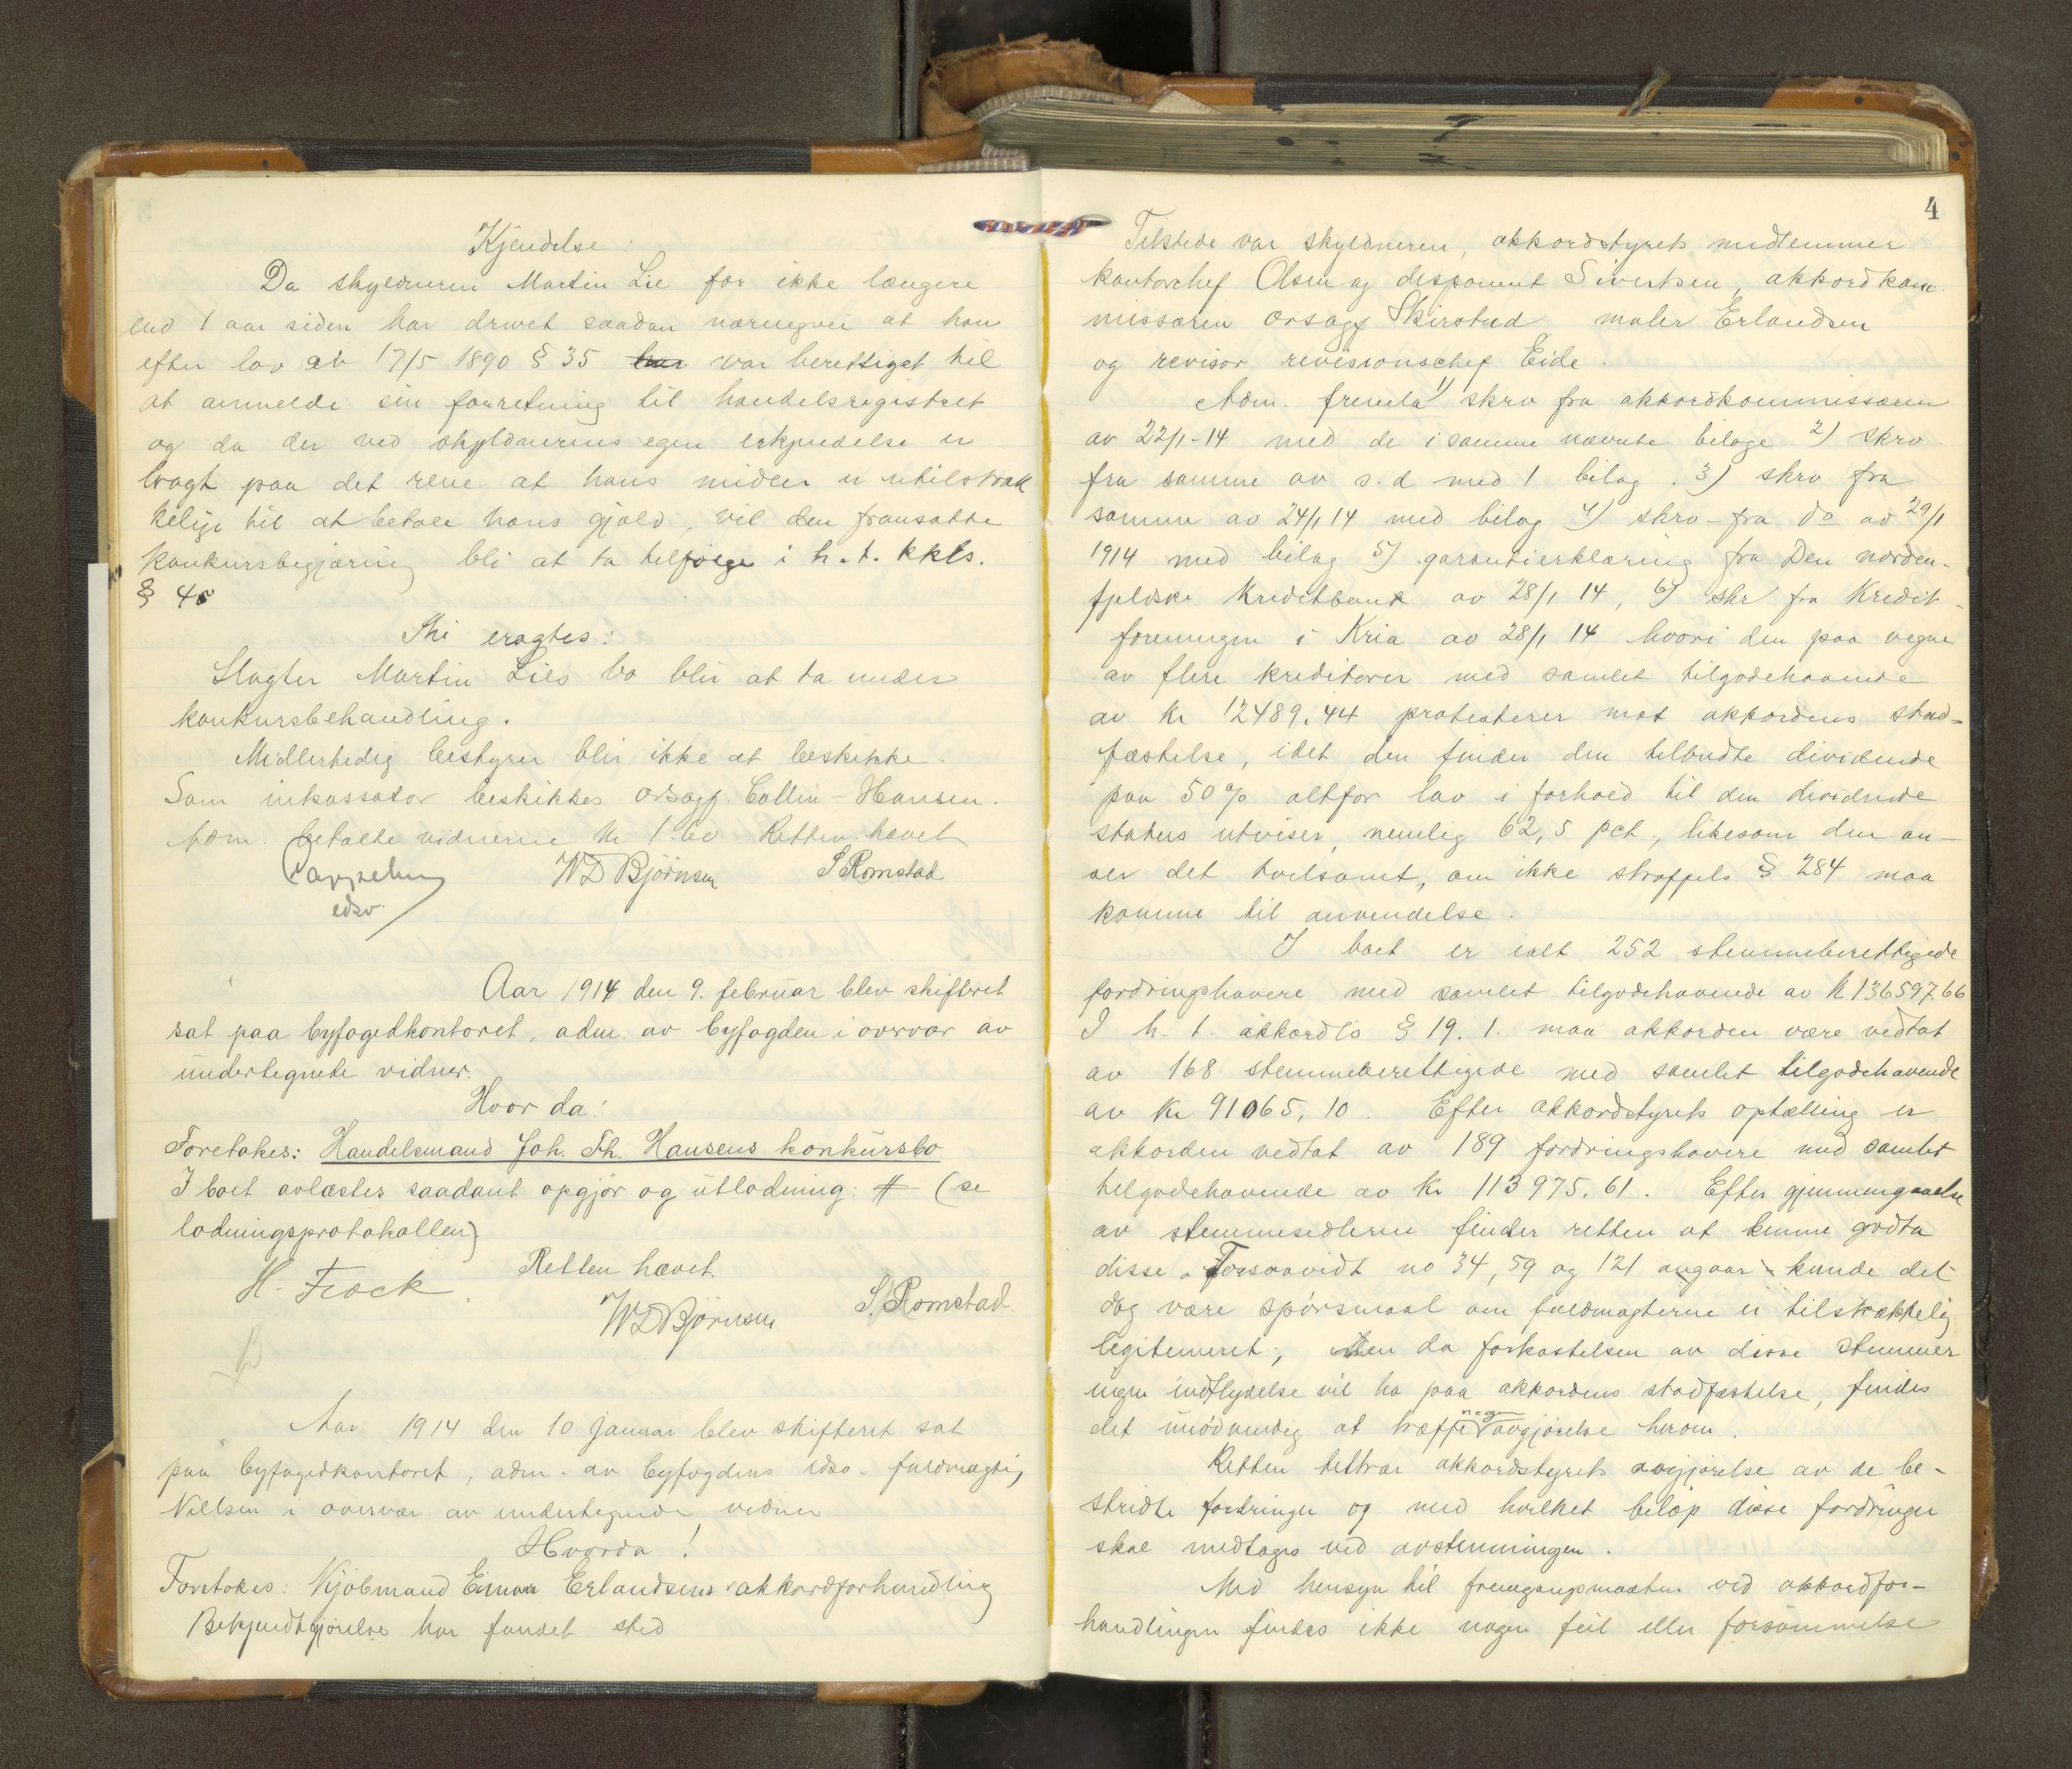 Kjendelse:
Da skyldneren Martin Lie for ikke længere
end 1 aar siden har drevet saadan næringsvei at han
efter lov av 17/5 1890 § 35 var berettiget til
at anmelde sin forretning til handelsregistret
og da det ved skyldnerens egen erkjendelse er
bragt paa det rene at hans midler er utilstræk
kelige til at betale hans gjæld, vil den fremsatte
konkursbegjæring bli at ta tilfølge i h. t. kkls.
§ 45
Thi eragtes:
Slagter Martin Lies bo blir at ta under
konkursbehandling.
Midlertidig bestyrer blir ikke at beskikke.
Som inkassator beskikkes orsagf. Collin-Hansen.
betalte vidnerne kr 1.60 Retten hævet
Cappelen W D Bjørnsen S Romstad
edsv.
Aar 1914 den 9. februar blev skifteret
sat paa byfogedkontoret, adm. av byfogden i overvær av
undertegnede vidner.
Hvor da!
Foretokes: Handelsmand Joh. Th. Hansens konkursbo
I boet avlæstes saadant opgjør og utlodning: # (se
lodningsprotokollen)
Retten hævet.
H. Frock W D Bjørnsen S. Romstad.
Aar 1914 den 10 januar blev skifteret sat
paa byfogedkontoret, adm. av byfogdens edsv. fuldmægtig
Nilssen i overvær av undertegnede vidner
Hvorda!
Foretokes: Kjøbmand Einar Erlandsens akkordforhandling
Bekjendtgjørelse har fundet sted
4
Tilstede var skyldneren, akkordstyrets medlemmer
kontorchef Olsen og disponent Sivertsen, akkordkom
missæren orsagf Skirstad maler Erlandsen
og revisor revisionschef Eide.
Adm. fremla 1) skrv fra akkordkommissæren
av 22/1-14 med de i samme nævnte bilage 2) skrv
fra samme av s. d. med 1 bilag. 3) skrv fra
samme av 24/1 14 med bilag 4) skrv fra do av 29/1
1914 med bilag 5) garantierklæring fra Den norden-
fjeldske Kreditbank av 28/1 14, 6) skr fra Kredit-
foreningen i Kria av 28/1 14 hvori den paa vegne
av flere kreditorer med samlet tilgodehavende
av kr 12489.44 protesterer mot akkordens stad-
fæstelse, idet den finder den tilbudte dividende
paa 50 % altfor lav i forhold til den dividende
status utviser, nemlig 62,5 pct., likesom den an-
ser det tvilsomt, om ikke straffels § 284 maa
komme til anvendelse.
I boet er ialt 252 stemmeberettigede
fordringshavere med samlet tilgodehavende av kr 136597.66
I h. t. akkordls § 19. 1. maa akkorden være vedtat
av 168 stemmeberettigede med samlet tilgodehavende
av kr 91065,10. Efter akkordstyrets optælling er
akkorden vedtat av 189 fordringshavere med samlet
tilgodehavende av kr 113975.61. Efter gjennemgaaelse
av stemmesedlerne finder retten at kunne godta
disse. Forsaavidt no 34, 59 og 121 angaar kunde det
dog være spørsmaal om fuldmagterne er tilstrækkelig
legitimeret; men da forkastelsen av disse stemmer
ingen indflydelse vil ha paa akkordens stadfæstelse, findes
det unødvendig at træffe nogen avgjørelse herom.
Retten tiltrær akkordstyrets avgjørelse av de be-
stridte fordringer og med hvilket beløp disse fordringer
skal medtages ved avstemningen.
Med hensyn til fremgangsmaaten ved akkordfor-
handlingen findes ikke nogen feil eller forsømmelse